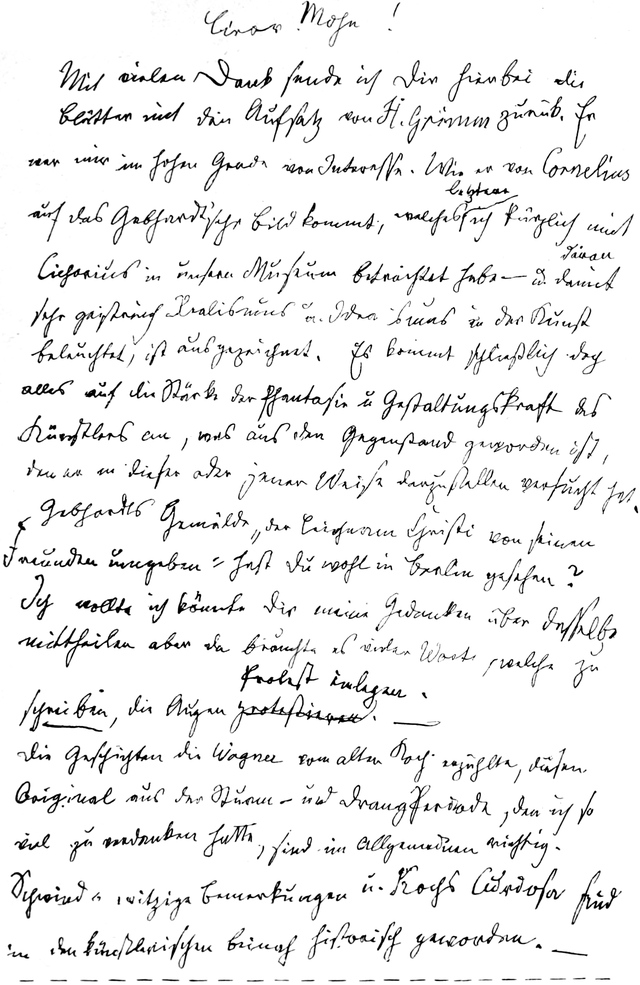 Lieber Mohn!
Mit vielen Dank sende ich Dir hierbei die
Blätter mit den Aufsatz von H. Grimm zurück. Er
war mir im hohen Grade von Interesse. Wie er von Cornelius
auf das Gebhardt'sche Bild kommt, welches letztere ich kürzlich mit
Cichorius in unsern Museum betrachtet habe — u. damit daran
sehr geistreich Realismus u. Idealismus in der Kunst
beleuchtet, ist ausgezeichnet. Es kommt schließlich doch
alles auf die Stärke der Phantasie u Gestaltungskraft des
Künstlers an, was aus den Gegenstand geworden ist,
den er in dieser oder jener Weise darzustellen versucht hat.
Gebhardts Gemälde, „der Leichnam Christi von seinen
Freunden umgeben" hast Du wohl in Berlin gesehen?
Ich wollte ich könnte Dir meine Gedanken über dasselbe
mittheilen aber da brauchte es vieler Worte, welche zu
schreiben, die Augen protestieren Protest einlegen. —
Die Geschichten die Wagner vom alten Koch erzählte, diesen
Original aus der Sturm- und Drang Periode, den ich so
viel zu verdanken hatte, sind im Allgemeinen richtig.
Schwind's witzige Bemerkungen u. Kochs sind
im den künstlerischen beinah historisch geworden. —